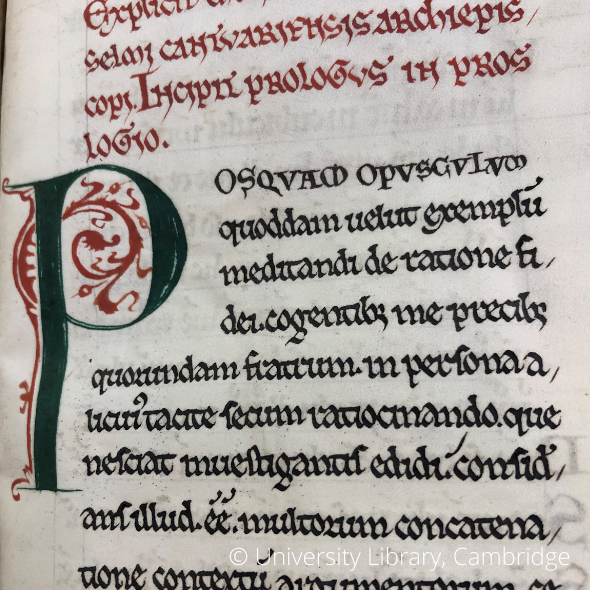 Explicit
selmi cantuariensis archiepis/
copi. Incipit prologus in pros
logio.
POSQVAM OPVSCVLVM
quoddam uelut exemplū
meditandi de ratione fi/
dei. cogentibꝫ me precibꝫ
quorundam fratrum. in persona a/
licui᷒ tacite secum ratiocinando. que
nesciat inuestigantis edidi. consid̄/
ans illud. ēē. multorum concatena/
tione contextū argumentorum. ce
© University Library, Cambridge